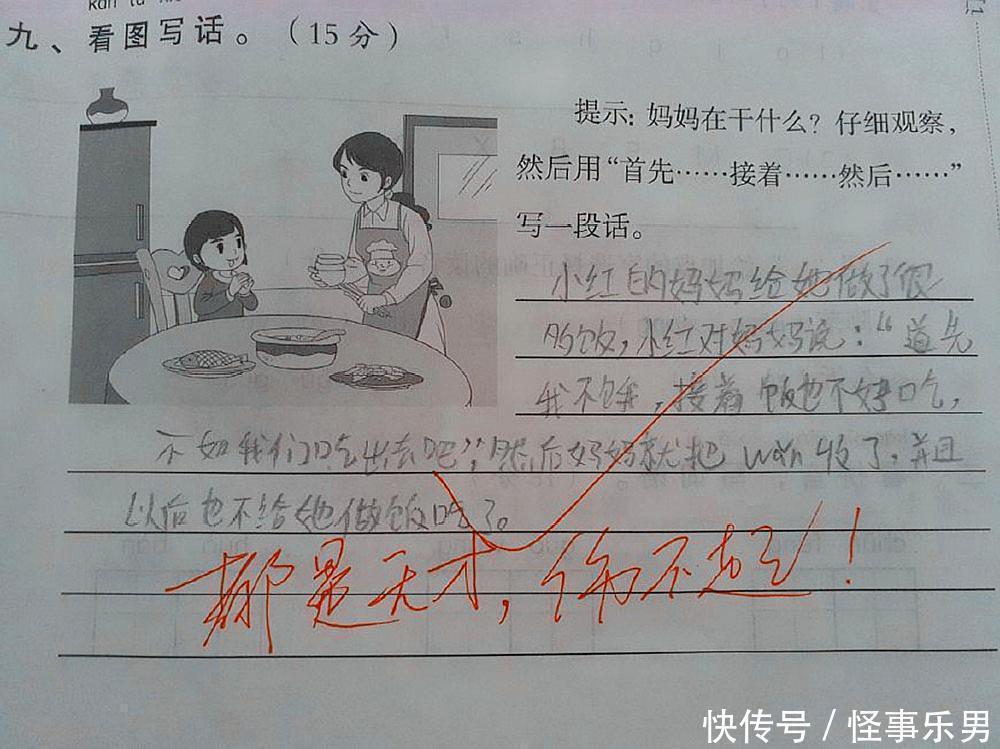 九、看图写话。（15分）
提示：妈妈在干什么？仔细观察，
然后用“首先……接着……然后……”
写一段话。
小红的妈妈给她做了很
多饭，小红对妈妈说：“首先
我不饿，接着饭也不好吃，
不如我们吃出去吧”，然后妈妈就把wǎn收了，并且
以后也不给她做饭吃了。
都是天才，伤不起！
快传号／怪事乐男